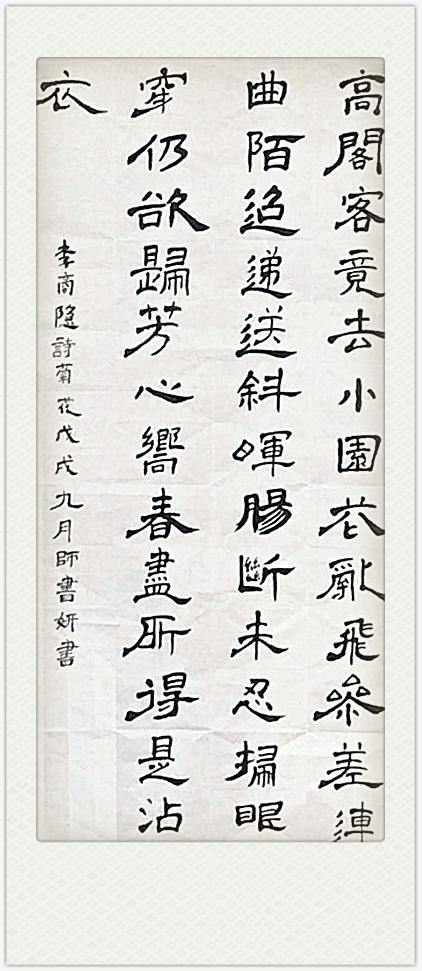 高閣客竟去小園花亂飛參差連
曲陌迢遞送斜暉腸斷未忍掃眼
穿仍欲歸芳心嚮春盡所得是沾
衣
李商隱詩菊花戊戌九月師書妍書